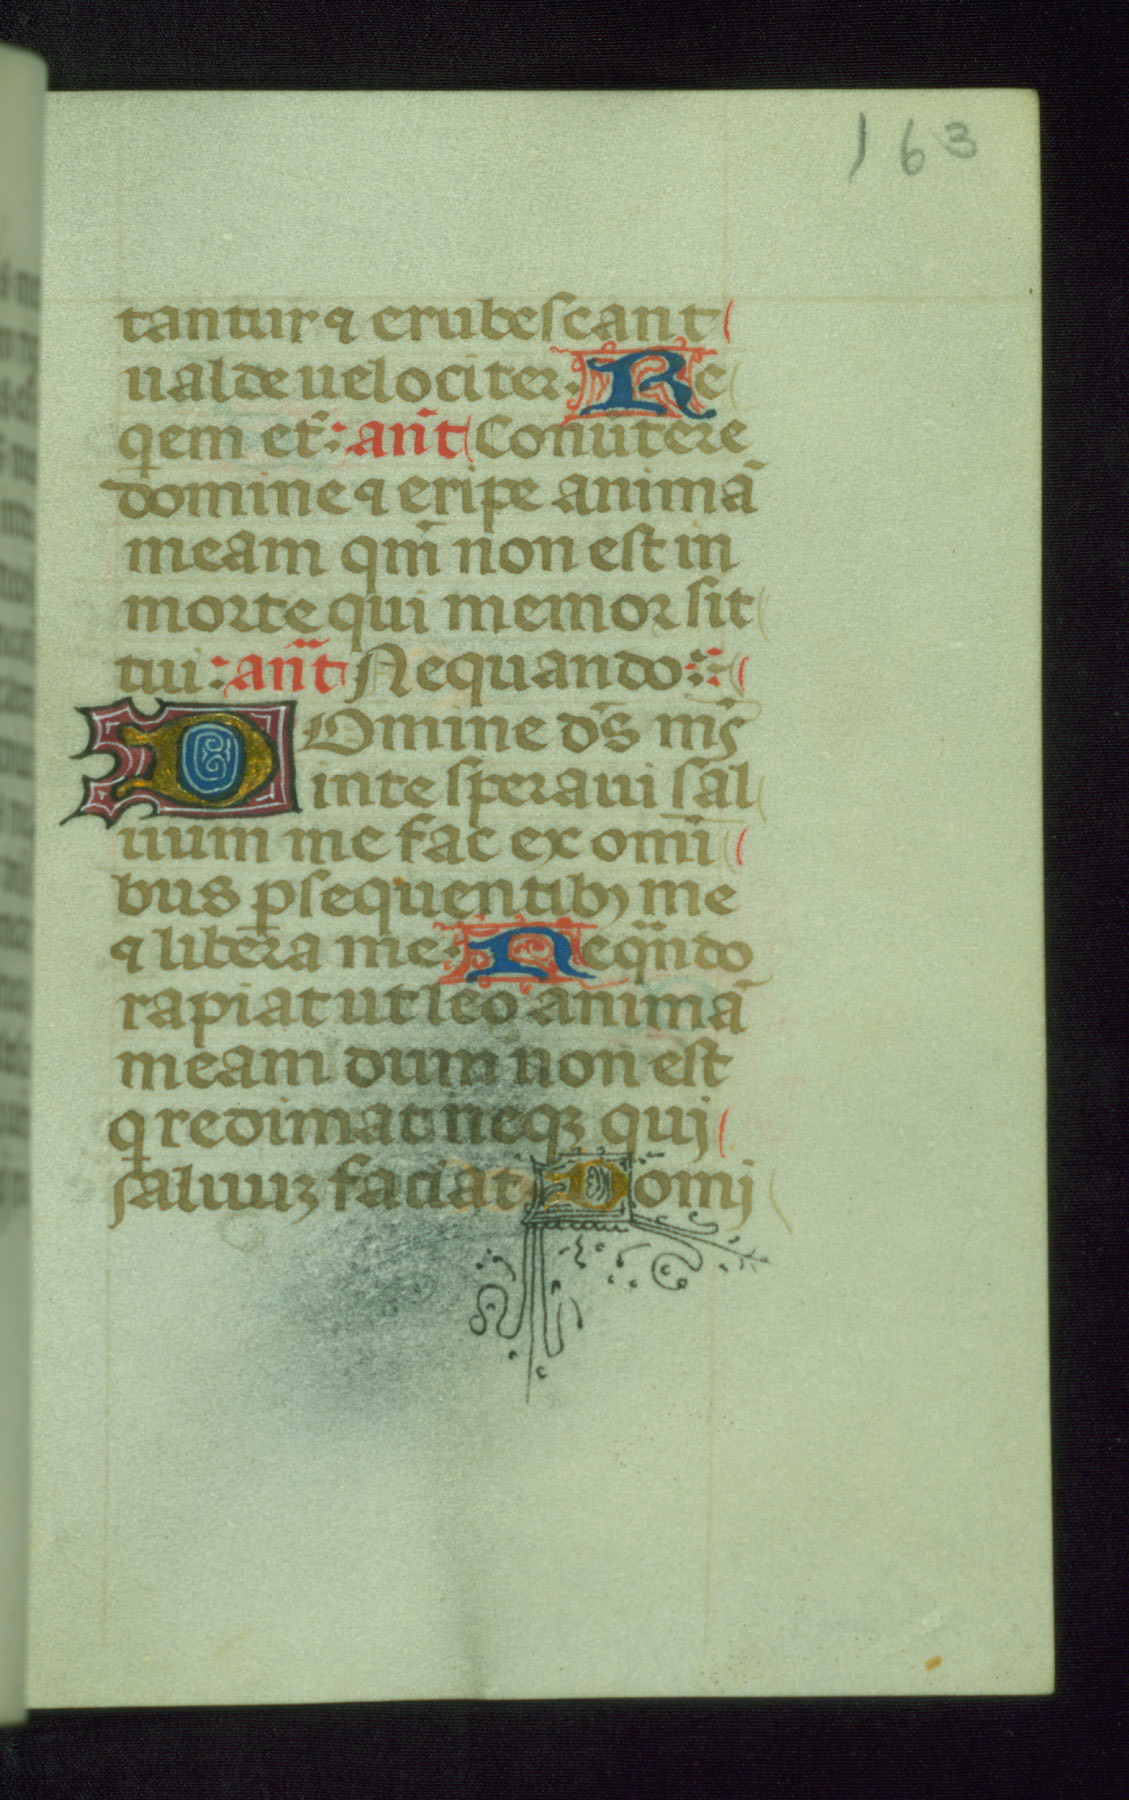 163
tantur ⁊ erubescant
ualde uelociter. Re
qem et̄: an̄t Conu̅tere
domine ⁊ eripe animā
meam qm̄ non est in
morte qui memor sit
tui: an̄t Nequando:
Domine ds̄ ms̄
in te speraui sal
uum me fac ex om̄i
bus ꝑsequentibꝫ me
⁊ libera me. Neqn̄do
rapiat ut leo animā
meam dum non est
q redimat neqꝫ qui
saluuꝫ faciat. Domi